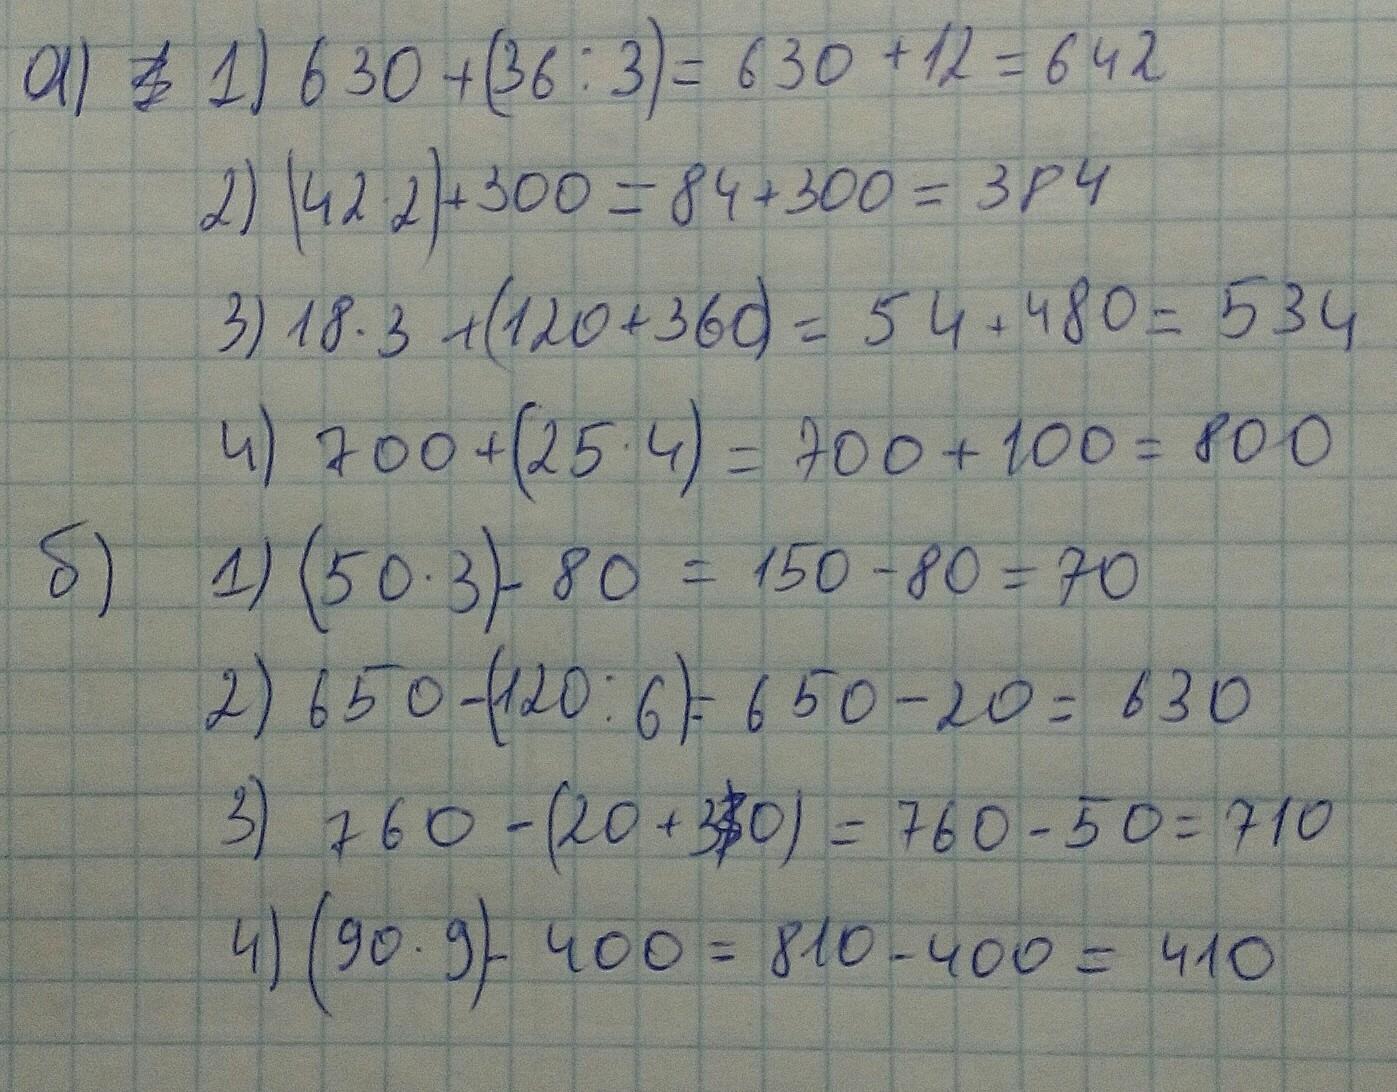 а) 1) 630 + (36 : 3) = 630 + 12 = 642
2) (42 · 2) + 300 = 84 + 300 = 384
3) 18 · 3 + (120 + 360) = 54 + 480 = 534
4) 700 + (25 · 4) = 700 + 100 = 800
б) 1) (50 · 3) - 80 = 150 - 80 = 70
2) 650 - (120 : 6) = 650 - 20 = 630
3) 760 - (20 + 30) = 760 - 50 = 710
4) (90 · 9) - 400 = 810 - 400 = 410